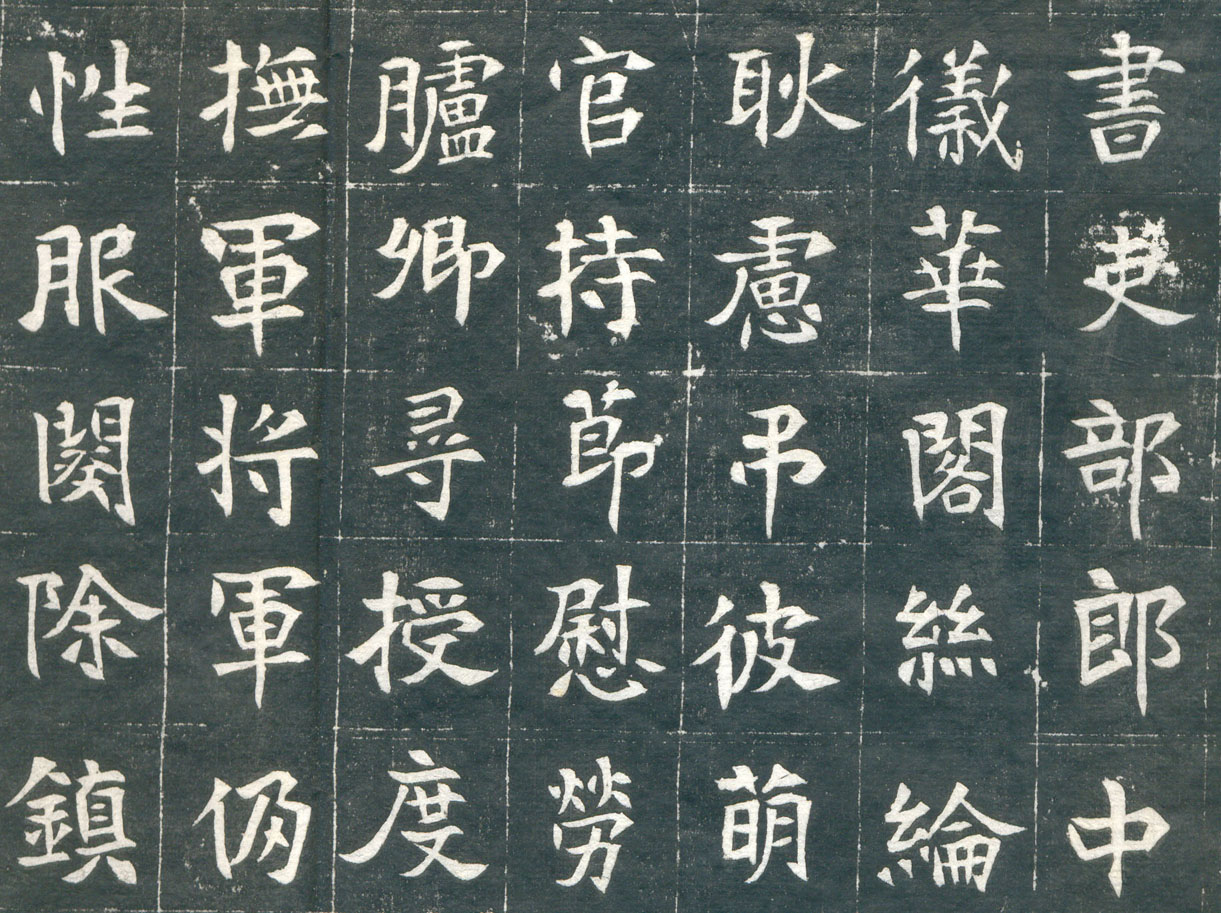 書吏部郎中
儀華閣絲綸
耿慮弔彼萌
官持節慰勞
臚卿尋授度
撫軍將軍仍
性服闋除鎮